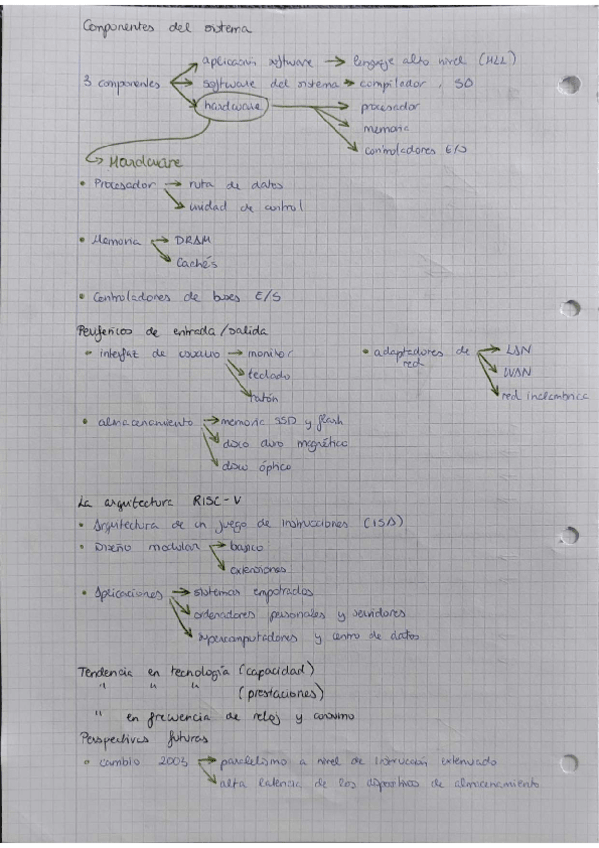 Componentes del sistema
aplicación software → lenguaje alto nivel (HLL)
3 componentes → software del sistema → compilador, SO
hardware → procesador
memoria
controladores E/S
→ Hardware
• Procesador → ruta de datos
→ unidad de control
• Memoria → DRAM
→ Cachés
• Controladores de buses E/S
Periféricos de entrada/salida
• interfaz de usuario → monitor
→ teclado
→ ratón
• adaptadores de red → LAN
→ WAN
→ red inalámbrica
• almacenamiento → memoria SSD y flash
→ disco duro magnético
→ disco óptico
La arquitectura RISC-V
• Arquitectura de un juego de instrucciones (ISA)
• Diseño modular → básico
→ extensiones
• Aplicaciones → sistemas empotrados
→ ordenadores personales y servidores
→ supercomputadores y centro de datos
Tendencia en tecnología (capacidad)
" " " (prestaciones)
" en frecuencia de reloj y consumo
Perspectivas futuras
• cambio 2005 → paralelismo a nivel de instrucción extenuado
→ alta latencia de los dispositivos de almacenamiento